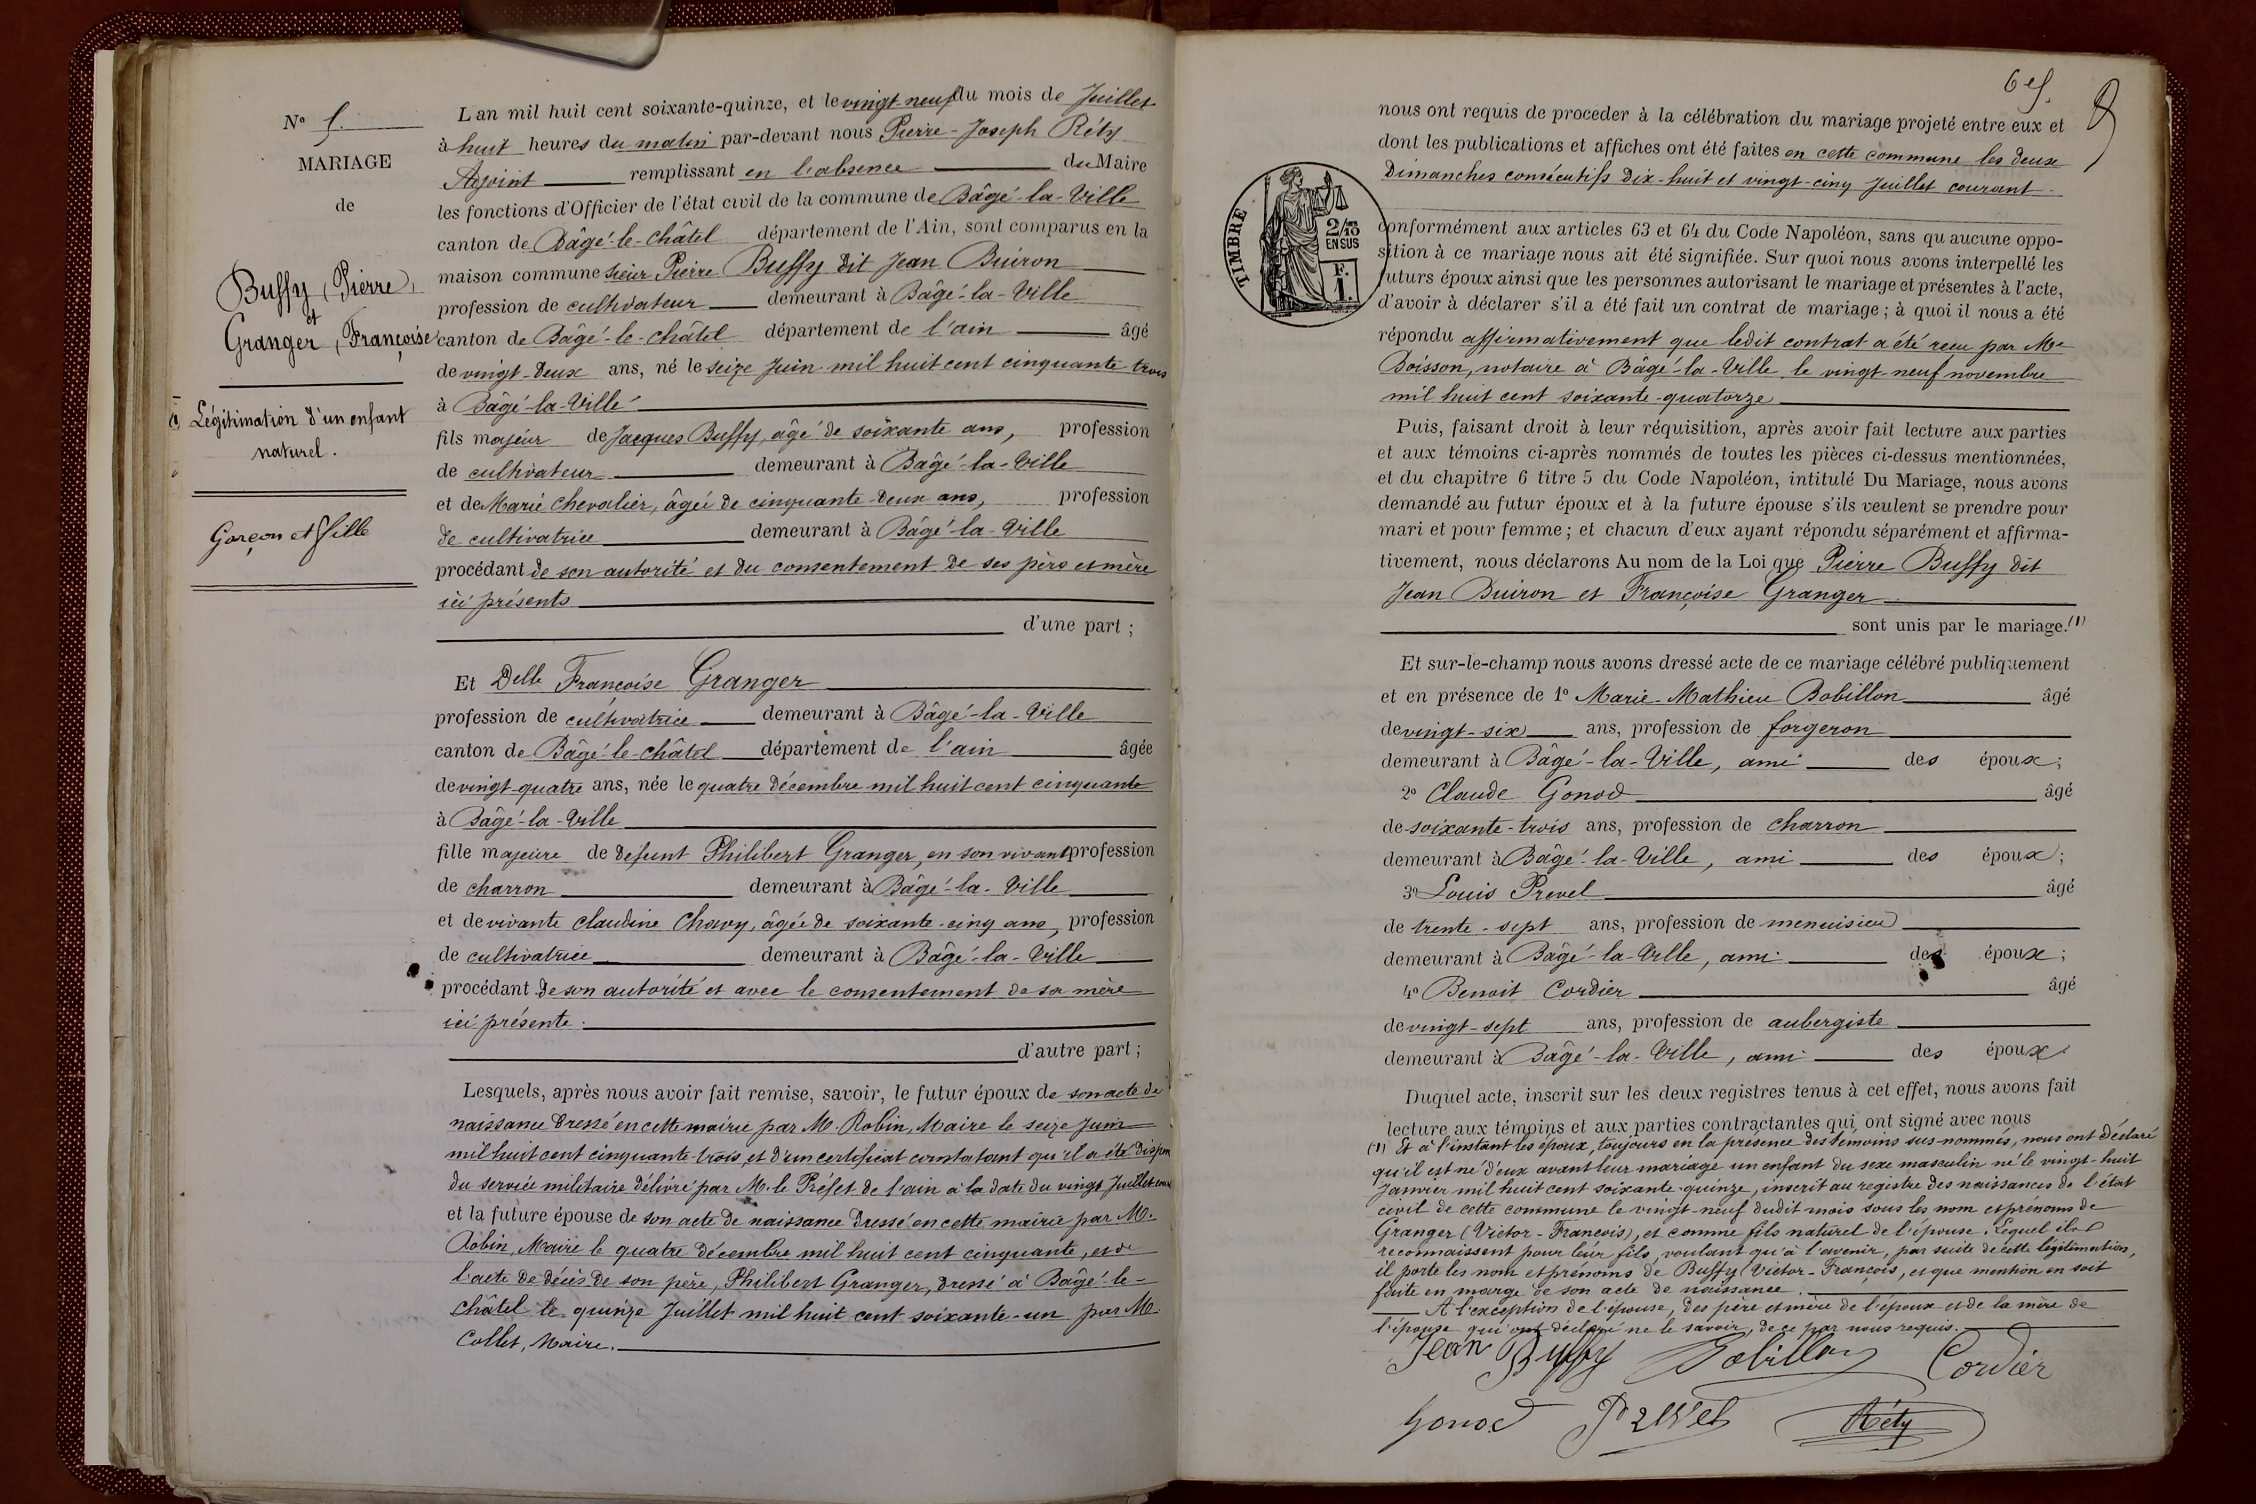 N° 5.
MARIAGE
de
Buffy, (Pierre),
et
Granger, (Françoise)
Légitimation d'un enfant
naturel.
Garçon et fille
L'an mil huit cent soixante-quinze, et le vingt-neuf du mois de Juillet
à huit heures du matin par-devant nous Pierre-Joseph Réty
Adjoint remplissant en l'absence du Maire
les fonctions d'Officier de l'état civil de la commune de Bâgé-la-Ville
canton de Bâgé-le-châtel département de l'Ain, sont comparus en la
maison commune sieur Pierre Buffy dit Jean Buiron
profession de cultivateur demeurant à Bâgé-la-Ville
canton de Bâgé-le-châtel département de l'ain âgé
de vingt-deux ans, né le seize Juin mil huit cent cinquante-trois
à Bâgé-la-Ville
fils majeur de Jacques Buffy, âgé de soixante ans, profession
de cultivateur demeurant à Bâgé-la-Ville
et de Marie Chevalier, âgée de cinquante-deux ans, profession
de cultivatrice demeurant à Bâgé-la-Ville
procédant de son autorité et du consentement de ses père et mère
ici présents
d'une part ;
Et Delle Françoise Granger
profession de cultivatrice demeurant à Bâgé-la-Ville
canton de Bâgé-le-châtel département de l'ain âgée
de vingt-quatre ans, née le quatre décembre mil huit cent cinquante
à Bâgé-la-Ville
fille majeure de défunt Philibert Granger, en son vivant profession
de charron demeurant à Bâgé-la-Ville
et de vivante Claudine Chavy, âgée de soixante-cinq ans, profession
de cultivatrice demeurant à Bâgé-la-Ville
procédant de son autorité et avec le consentement de sa mère
ici présente.
d'autre part ;
Lesquels, après nous avoir fait remise, savoir, le futur époux de son acte de
naissance dressé en cette mairie par M. Robin, Maire le seize Juin
mil huit cent cinquante-trois, et d'un certificat constatant qu'il a été dispensé
du service militaire délivré par M. le Préfet de l'ain à la date du vingt Juillet
et la future épouse de son acte de naissance dressé en cette mairie par M.
Robin, Maire le quatre décembre mil huit cent cinquante, et de
l'acte de décès de son père, Philibert Granger, dressé à Bâgé-le-
châtel le quinze Juillet mil huit cent soixante-un par M.
Collet, Maire.
TIMBRE
2/10
EN SUS
F.
1.
nous ont requis de proceder à la célébration du mariage projeté entre eux et
dont les publications et affiches ont été faites en cette commune les deux
Dimanches consécutifs dix-huit et vingt-cinq Juillet courant
conformément aux articles 63 et 64 du Code Napoléon, sans qu'aucune oppo-
sition à ce mariage nous ait été signifiée. Sur quoi nous avons interpellé les
futurs époux ainsi que les personnes autorisant le mariage et présentes à l'acte,
d'avoir à déclarer s'il a été fait un contrat de mariage ; à quoi il nous a été
répondu affirmativement que ledit contrat a été reçu par Me
Boisson, notaire à Bâgé-la-Ville le vingt-neuf novembre
mil huit cent soixante-quatorze
Puis, faisant droit à leur réquisition, après avoir fait lecture aux parties
et aux témoins ci-après nommés de toutes les pièces ci-dessus mentionnées,
et du chapitre 6 titre 5 du Code Napoléon, intitulé Du Mariage, nous avons
demandé au futur époux et à la future épouse s'ils veulent se prendre pour
mari et pour femme ; et chacun d'eux ayant répondu séparément et affirma-
tivement, nous déclarons Au nom de la Loi que Pierre Buffy dit
Jean Buiron et Françoise Granger
sont unis par le mariage. (1)
Et sur-le-champ nous avons dressé acte de ce mariage célébré publiquement
et en présence de 1° Marie-Mathieu Bobillon âgé
de vingt-six ans, profession de forgeron
demeurant à Bâgé-la-Ville, ami des époux ;
2° Claude Gonod âgé
de soixante-trois ans, profession de charron
demeurant à Bâgé-la-Ville, ami des époux ;
3° Louis Prevel âgé
de trente-sept ans, profession de menuisier
demeurant à Bâgé-la-Ville, ami des époux ;
4° Benoit Cordier âgé
de vingt-sept ans, profession de aubergiste
demeurant à Bâgé-la-Ville, ami des époux
Duquel acte, inscrit sur les deux registres tenus à cet effet, nous avons fait
lecture aux témoins et aux parties contractantes qui ont signé avec nous
(1) Et à l'instant les époux, toujours en la présence des témoins sus-nommés, nous ont déclaré
qu'il est né d'eux avant leur mariage un enfant du sexe masculin né le vingt-huit
Janvier mil huit cent soixante-quinze, inscrit au registre des naissances de l'état
civil de cette commune le vingt-neuf dudit mois sous les nom et prénoms de
Granger (Victor-François), et comme fils naturel de l'épouse. Lequel ils
reconnaissent pour leur fils, voulant qu'à l'avenir, par suite de cette légitimation,
il porte les nom et prénoms de Buffy Victor-François, et que mention en soit
faite en marge de son acte de naissance.
A l'exception de l'épouse, des père et mère de l'époux et de la mère de
l'épouse qui ont déclaré ne le savoir, de ce par nous requis.
Jean Buffy Bobillon Cordier
Gonod Prevel Réty